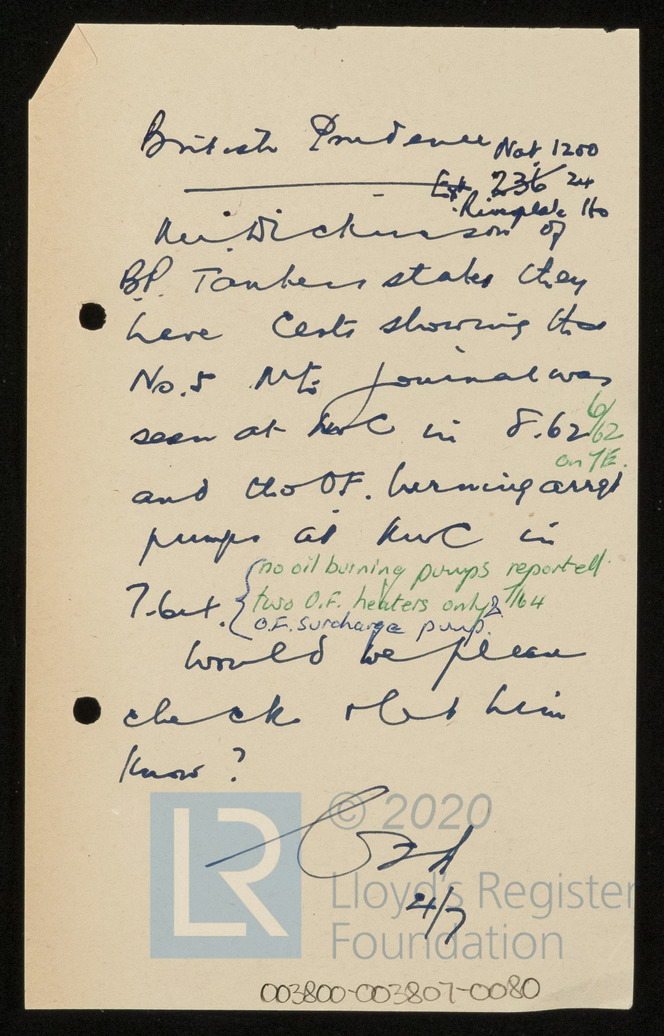 British Prudence Nat 1200
Ext 236 24
Ho
Mr Dickinson of
BP. Tankers states they
have Certs showing the
No. 5 Mtr Journal was
seen at NwC in 8.62 6/62
on TE.
and the OF. burning arrgt
pumps at NwC in
7.64. { no oil burning pumps reported
two O.F. heaters only 7/64
& O.F. Surcharge pump.
Would we please
check & let him
know?
4/7
LR © 2020
Lloyd's Register
Foundation
003800-003807-0080